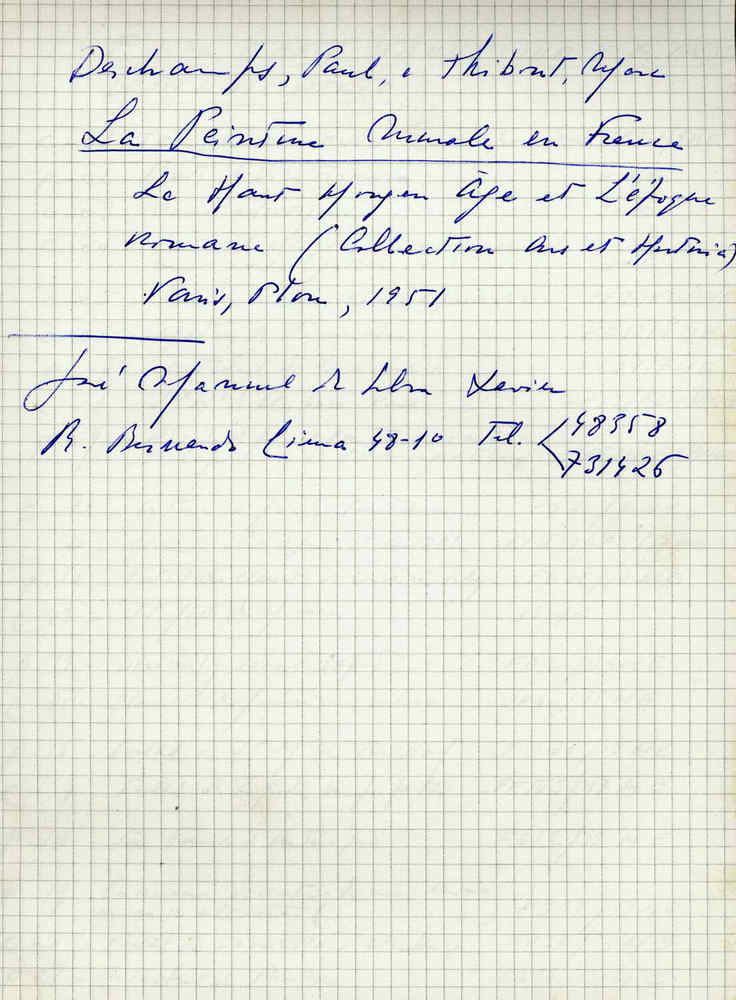 Deschamps, Paul, e Thibout, Marc
La Peinture Murale en France
Le Haut Moyen Âge et L'époque
romane (Collection Ars et Historia)
Paris, Plon, 1951
José Manuel da Silva Xavier
R. Bernardo Lima 48-1º Tel. 48358
731426